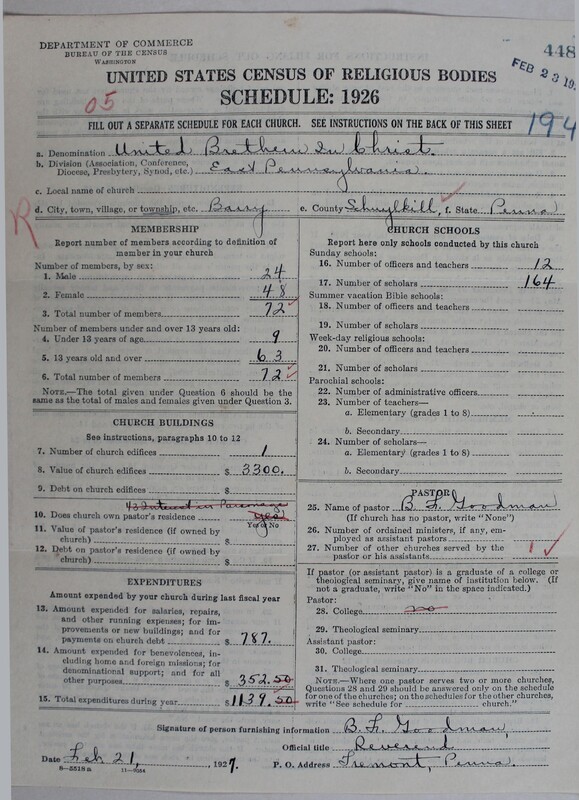 DEPARTMENT OF COMMERCE
BUREAU OF THE CENSUS
WASHINGTON
448
FEB 23 19
UNITED STATES CENSUS OF RELIGIOUS BODIES
SCHEDULE: 1926
05
FILL OUT A SEPARATE SCHEDULE FOR EACH CHURCH. SEE INSTRUCTIONS ON THE BACK OF THIS SHEET
194
a. Denomination United Brethern In Christ.
b. Division (Association, Conference, Diocese, Presbytery, Synod, etc.) East Pennsylvania.
c. Local name of church
R
d. City, town, village, or township, etc. Barry e. County Schuylkill, f. State Penna
MEMBERSHIP
Report number of members according to definition of
member in your church
Number of members, by sex:
1. Male 24
2. Female 48
3. Total number of members 72
Number of members under and over 13 years old:
4. Under 13 years of age 9
5. 13 years old and over 63
6. Total number of members 72
NOTE.—The total given under Question 6 should be the
same as the total of males and females given under Question 3.
CHURCH BUILDINGS
See instructions, paragraphs 10 to 12
7. Number of church edifices 1
8. Value of church edifices $ 3300.
9. Debt on church edifices $
1/3 Interest in Parsonage
10. Does church own pastor's residence yes
Yes or No
11. Value of pastor's residence (if owned by
church) $
12. Debt on pastor's residence (if owned by
church) $
EXPENDITURES
Amount expended by your church during last fiscal year
13. Amount expended for salaries, repairs,
and other running expenses; for im-
provements or new buildings; and for
payments on church debt $ 787.
14. Amount expended for benevolences, in-
cluding home and foreign missions; for
denominational support; and for all
other purposes $ 352.50
15. Total expenditures during year $ 1139.50
CHURCH SCHOOLS
Report here only schools conducted by this church
Sunday schools:
16. Number of officers and teachers 12
17. Number of scholars 164
Summer vacation Bible schools:
18. Number of officers and teachers
19. Number of scholars
Week-day religious schools:
20. Number of officers and teachers
21. Number of scholars
Parochial schools:
22. Number of administrative officers
23. Number of teachers—
a. Elementary (grades 1 to 8)
b. Secondary
24. Number of scholars—
a. Elementary (grades 1 to 8)
b. Secondary
PASTOR
25. Name of pastor B. F. Goodman
(If church has no pastor, write "None")
26. Number of ordained ministers, if any, em-
ployed as assistant pastors
27. Number of other churches served by the
pastor or his assistants 1
If pastor (or assistant pastor) is a graduate of a college or
theological seminary, give name of institution below. (If
not a graduate, write "No" in the space indicated.)
Pastor:
28. College no
29. Theological seminary
Assistant pastor:
30. College
31. Theological seminary
NOTE.—Where one pastor serves two or more churches,
Questions 28 and 29 should be answered only on the schedule
for one of the churches; on the schedules for the other churches,
write "See schedule for church."
Signature of person furnishing information B. F. Goodman,
Official title Reverend
Date Feb 21, 1927. P. O. Address Tremont, Penna.
8—5518a 11—9034